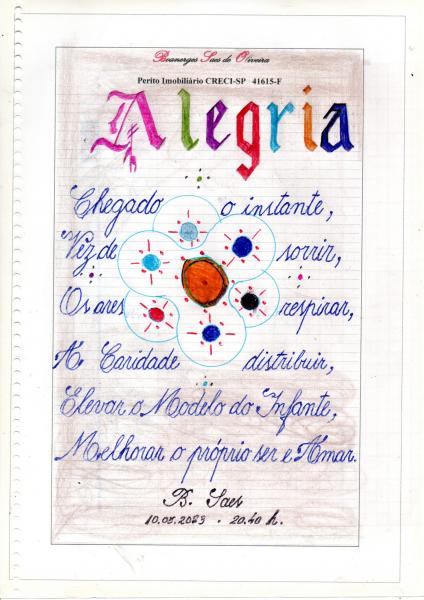 Boanerges Saes de Oliveira
Perito Imobiliário CRECI-SP 41615-F
Alegria
Chegado o instante,
Vez de sorrir,
Os ares respirar,
A Caridade distribuir,
Elevar o Modelo do Infante,
Melhorar o próprio ser e Amar.
B. Saes
10.05.2023 - 20.40 h.